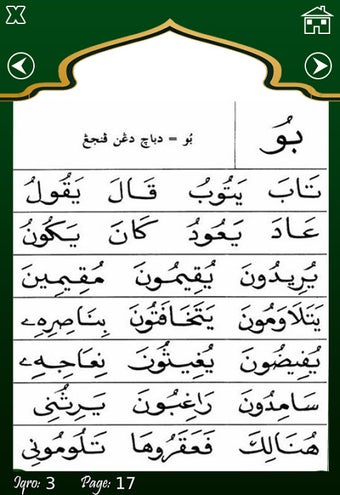 X
بُو بُو = دباچ دڠن ڤنجڠ
تَابَ يَتُوبُ قَالَ يَقُولُ
عَادَ يَعُودُ كَانَ يَكُونُ
يُرِيدُونَ يُقِيمُونَ مُقِيمِينَ
يَتَلَاوَمُونَ يَتَخَافَتُونَ بِنَاصِرِهِۦ
يُفِيضُونَ يُغِيثُونَ نِعَاجِهِۦ
سَامِدُونَ رَاغِبُونَ يَرِثُنِى
هُنَالِكَ فَعَقَرُوهَا تَلُومُونِى
Iqro: 3 Page: 17